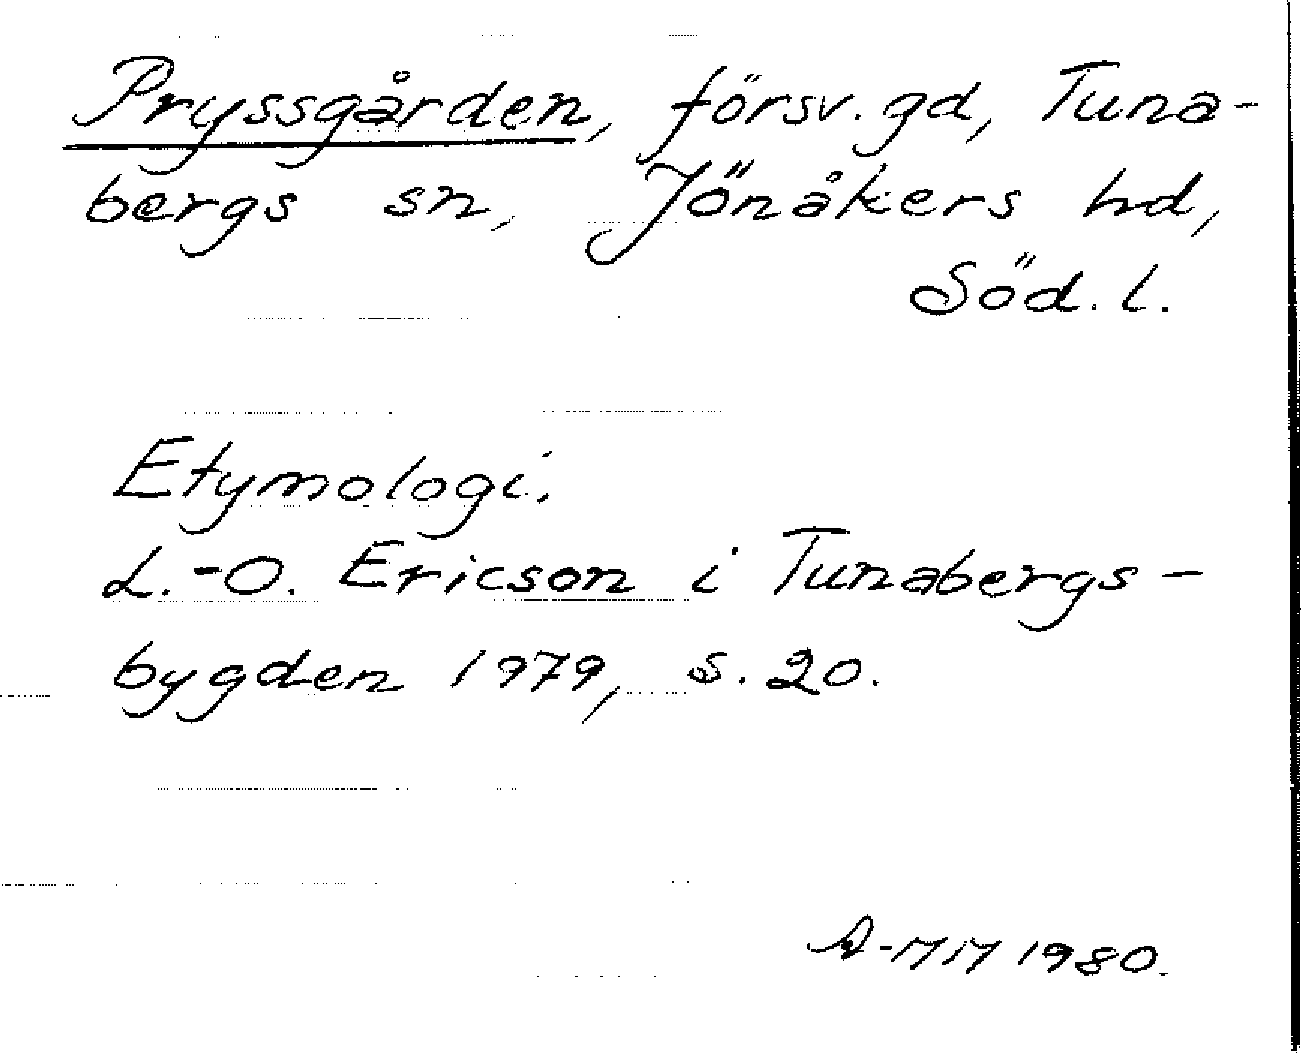 Pryssgården, försv. gd, Tuna-
bergs sn, Jönåkers hd,
Söd. l.
Etymologi.
L.-O. Ericson i Tunabergs-
bygden 1979, s. 20.
A-MM 1980.